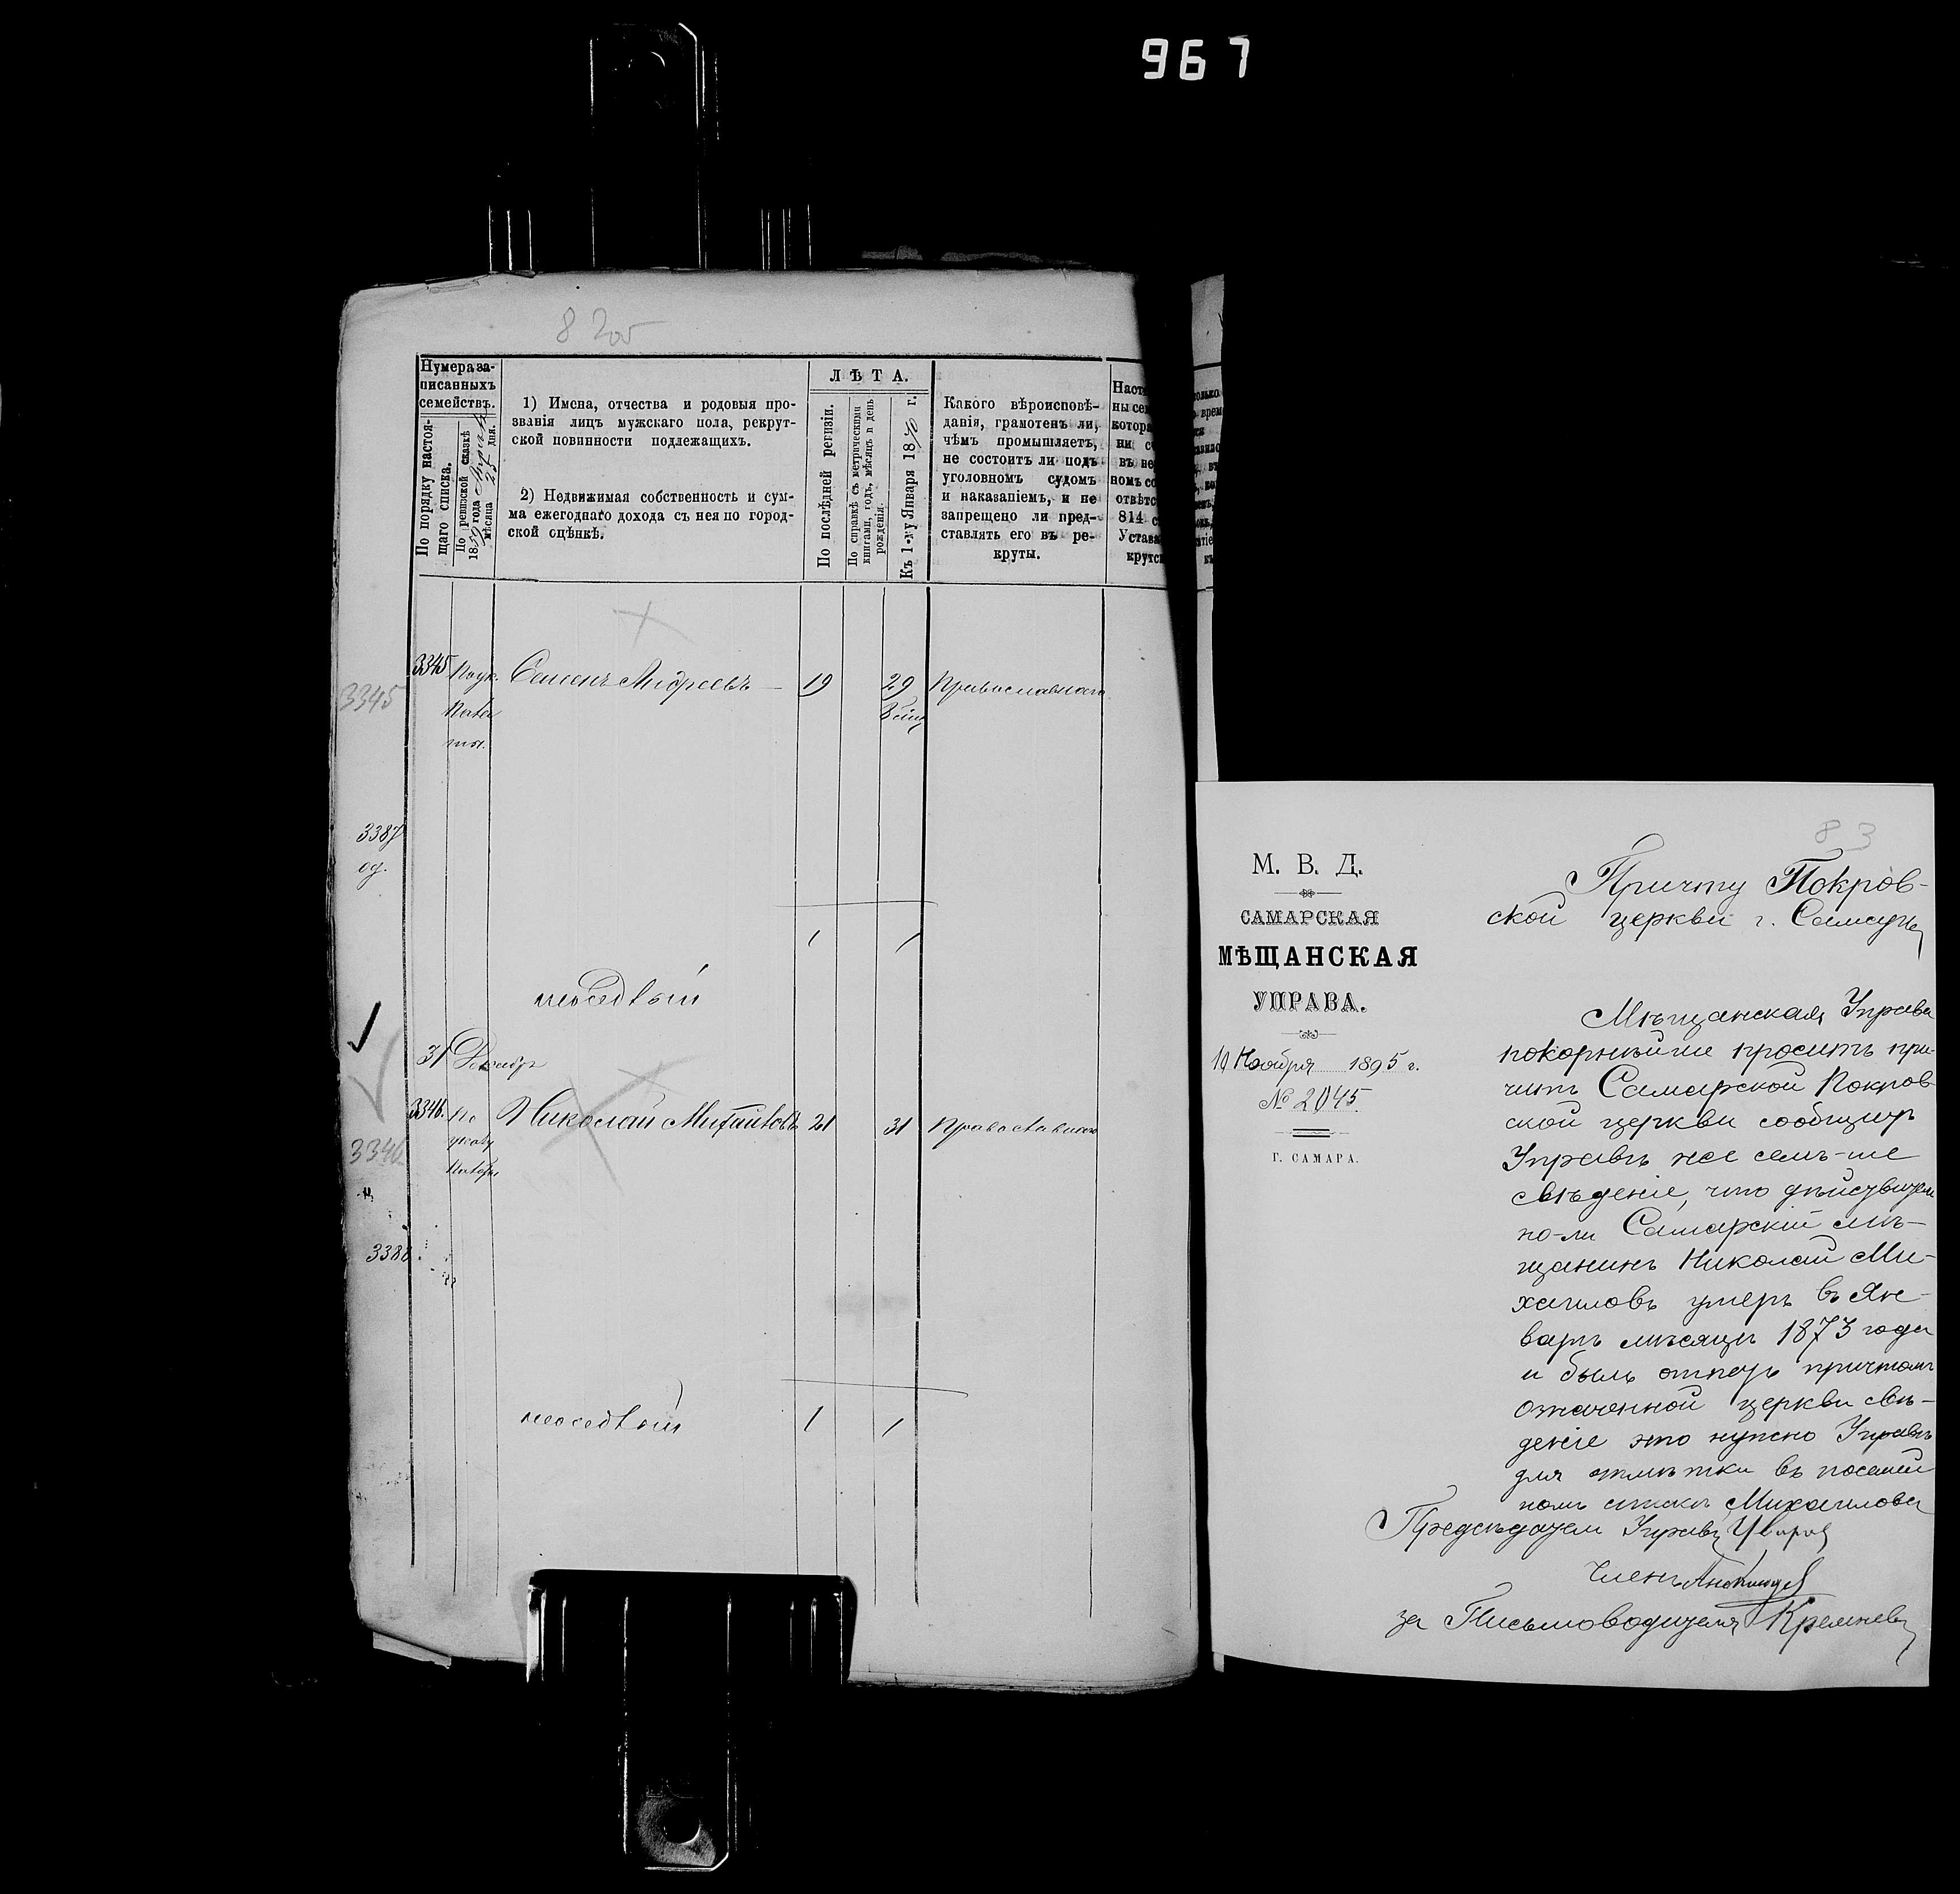 967
8 
Нумера за-
писанныхъ
семействъ.
По порядку настоя-
щаго списка.
По ревизской сказкѣ
1859 года
мѣсяца 25 дня.
1) Имена, отчества и родовыя про-
званія лицъ мужскаго пола, рекрут-
ской повинности подлежащихъ.
2) Недвижимая собственность и сум-
ма ежегоднаго дохода съ нея по город-
ской оцѣнкѣ.
ЛѢТА.
По послѣдней ревизіи.
По справкѣ съ метрическими
книгами, годъ, мѣсяцъ и день
рожденія.
Къ 1-му Января 1870 г.
Какого вѣроисповѣ-
данія, грамотенъ ли,
чѣмъ промышляетъ,
не состоитъ ли подъ
уголовномъ судомъ
и наказаніемъ, и не
запрещено ли пред-
ставлять его въ ре-
круты.
Наст
ны се
котор
ни с
въ не
номъ со
отвѣтс
814 с
Устава
крутс
3345 Семенъ Андреевъ 19 29 Православнаго
3345
3387
од.
1 1
31 Декабр
3346. По Николай Михайловъ 21 31 Православнаго
указу
3346
3388.
1 1
83
М. В. Д.
САМАРСКАЯ
МѢЩАНСКАЯ
УПРАВА.
10 Ноября 1895 г.
№ 2045
Г. САМАРА.
Причту Покров-
ской церкви г. Самары
Мѣщанская Управа
покорнѣйше проситъ при-
чтъ Самарской Покров-
ской церкви сообщить
Управѣ на семъ-же
свѣденіе, что дѣйствитель
но-ли Самарскій мѣ-
щанинъ Николай Ми-
хайловъ умеръ въ Ян-
варѣ мѣсяцѣ 1873 года
и былъ отпетъ причтомъ
означенной церкви свѣ-
деніе это нужно Управѣ
для отмѣтки въ посемей
номъ спискѣ Михайлова
Предсѣдатель Управы
Членъ
за Письмоводителя Кремневъ